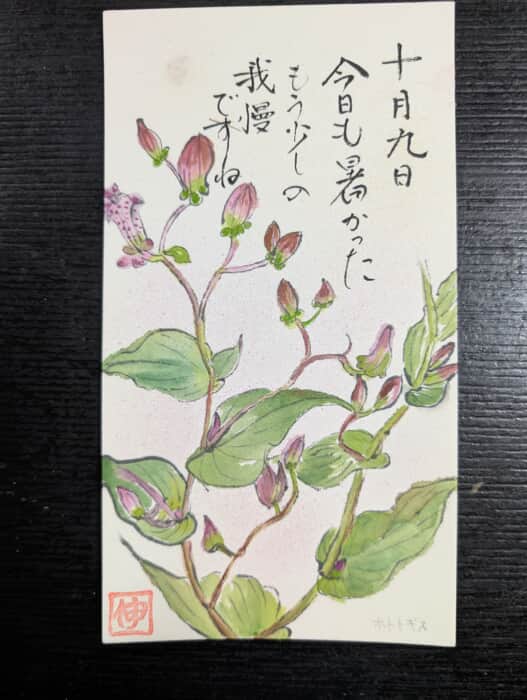 十月九日
今日も暑かった
もう少しの
我慢
ですね
伸
ホトトギス